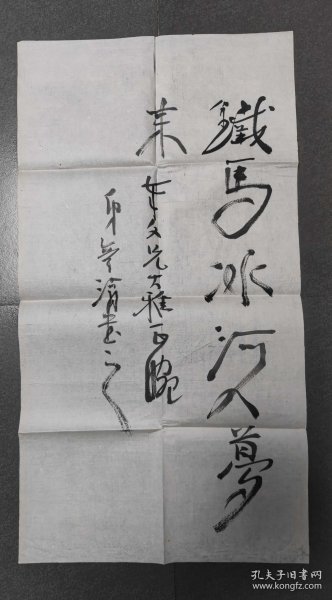 鐵馬冰河入夢
来 文兄大雅正腕
清書之
孔夫子旧书网
www.kongfz.com